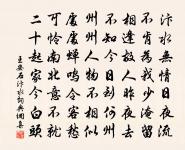 汴水無情日夜流
不肯為我少淹留
相逢故人昨夜去
不知今日到何州
州州人物不相似
處處蟬鳴令客愁
可憐南北意不就
二十起家今白頭
王安石汴水